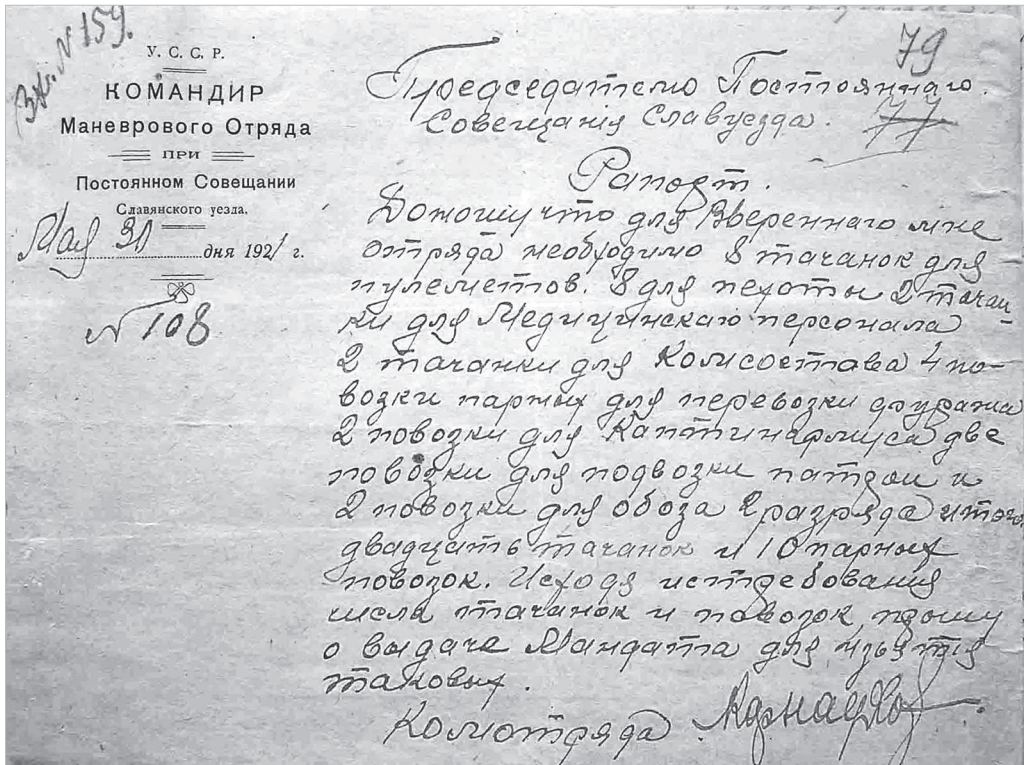 Вх. N 159.
У. С. С. Р.
КОМАНДИР
Маневрового Отряда
ПРИ
Постоянном Совещании
Славянского уезда.
Мая 30 дня 1921 г.
N 108
79
77
Председателю Постояннаго
Совещанія Славуезда.
Рапорт.
Доношу что для Ввереннаго мне
отряда необходимо 8 тачанок для
пулеметов. 8 для пехоты 2 тачан-
ки для Медицинскаго персонала
2 тачанки для Комсостава 4 по-
возки парных для перевозки фуража
2 повозки для Каптинармуса две
повозки для подвозки патрон и
2 повозки для обоза 2 разряда итого
двадцать тачанок и 10 парных
повозок. Исходя из требования
числа тачанок и повозок прошу
о выдаче Мандата для изъятия
таковых.
Комотряда